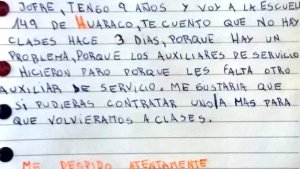 JOFRE, TENGO 9 AÑOS Y VOY A LA ESCUEL
149 DE HUARACO, TE CUENTO QUE NO HAY
CLASES HACE 3 DIAS, PORQUE HAY UN
PROBLEMA, PORQUE LOS AUXILIARES DE SERVICIO
HICIERON PARO PORQUE LES FALTA OTRO
AUXILIAR DE SERVICIO. ME GUSTARIA QUE
SI PUDIERAS CONTRATAR UNO/A MAS PARA
QUE VOLVIERAMOS A CLASES.
ME DESPIDO ATENTAMENTE